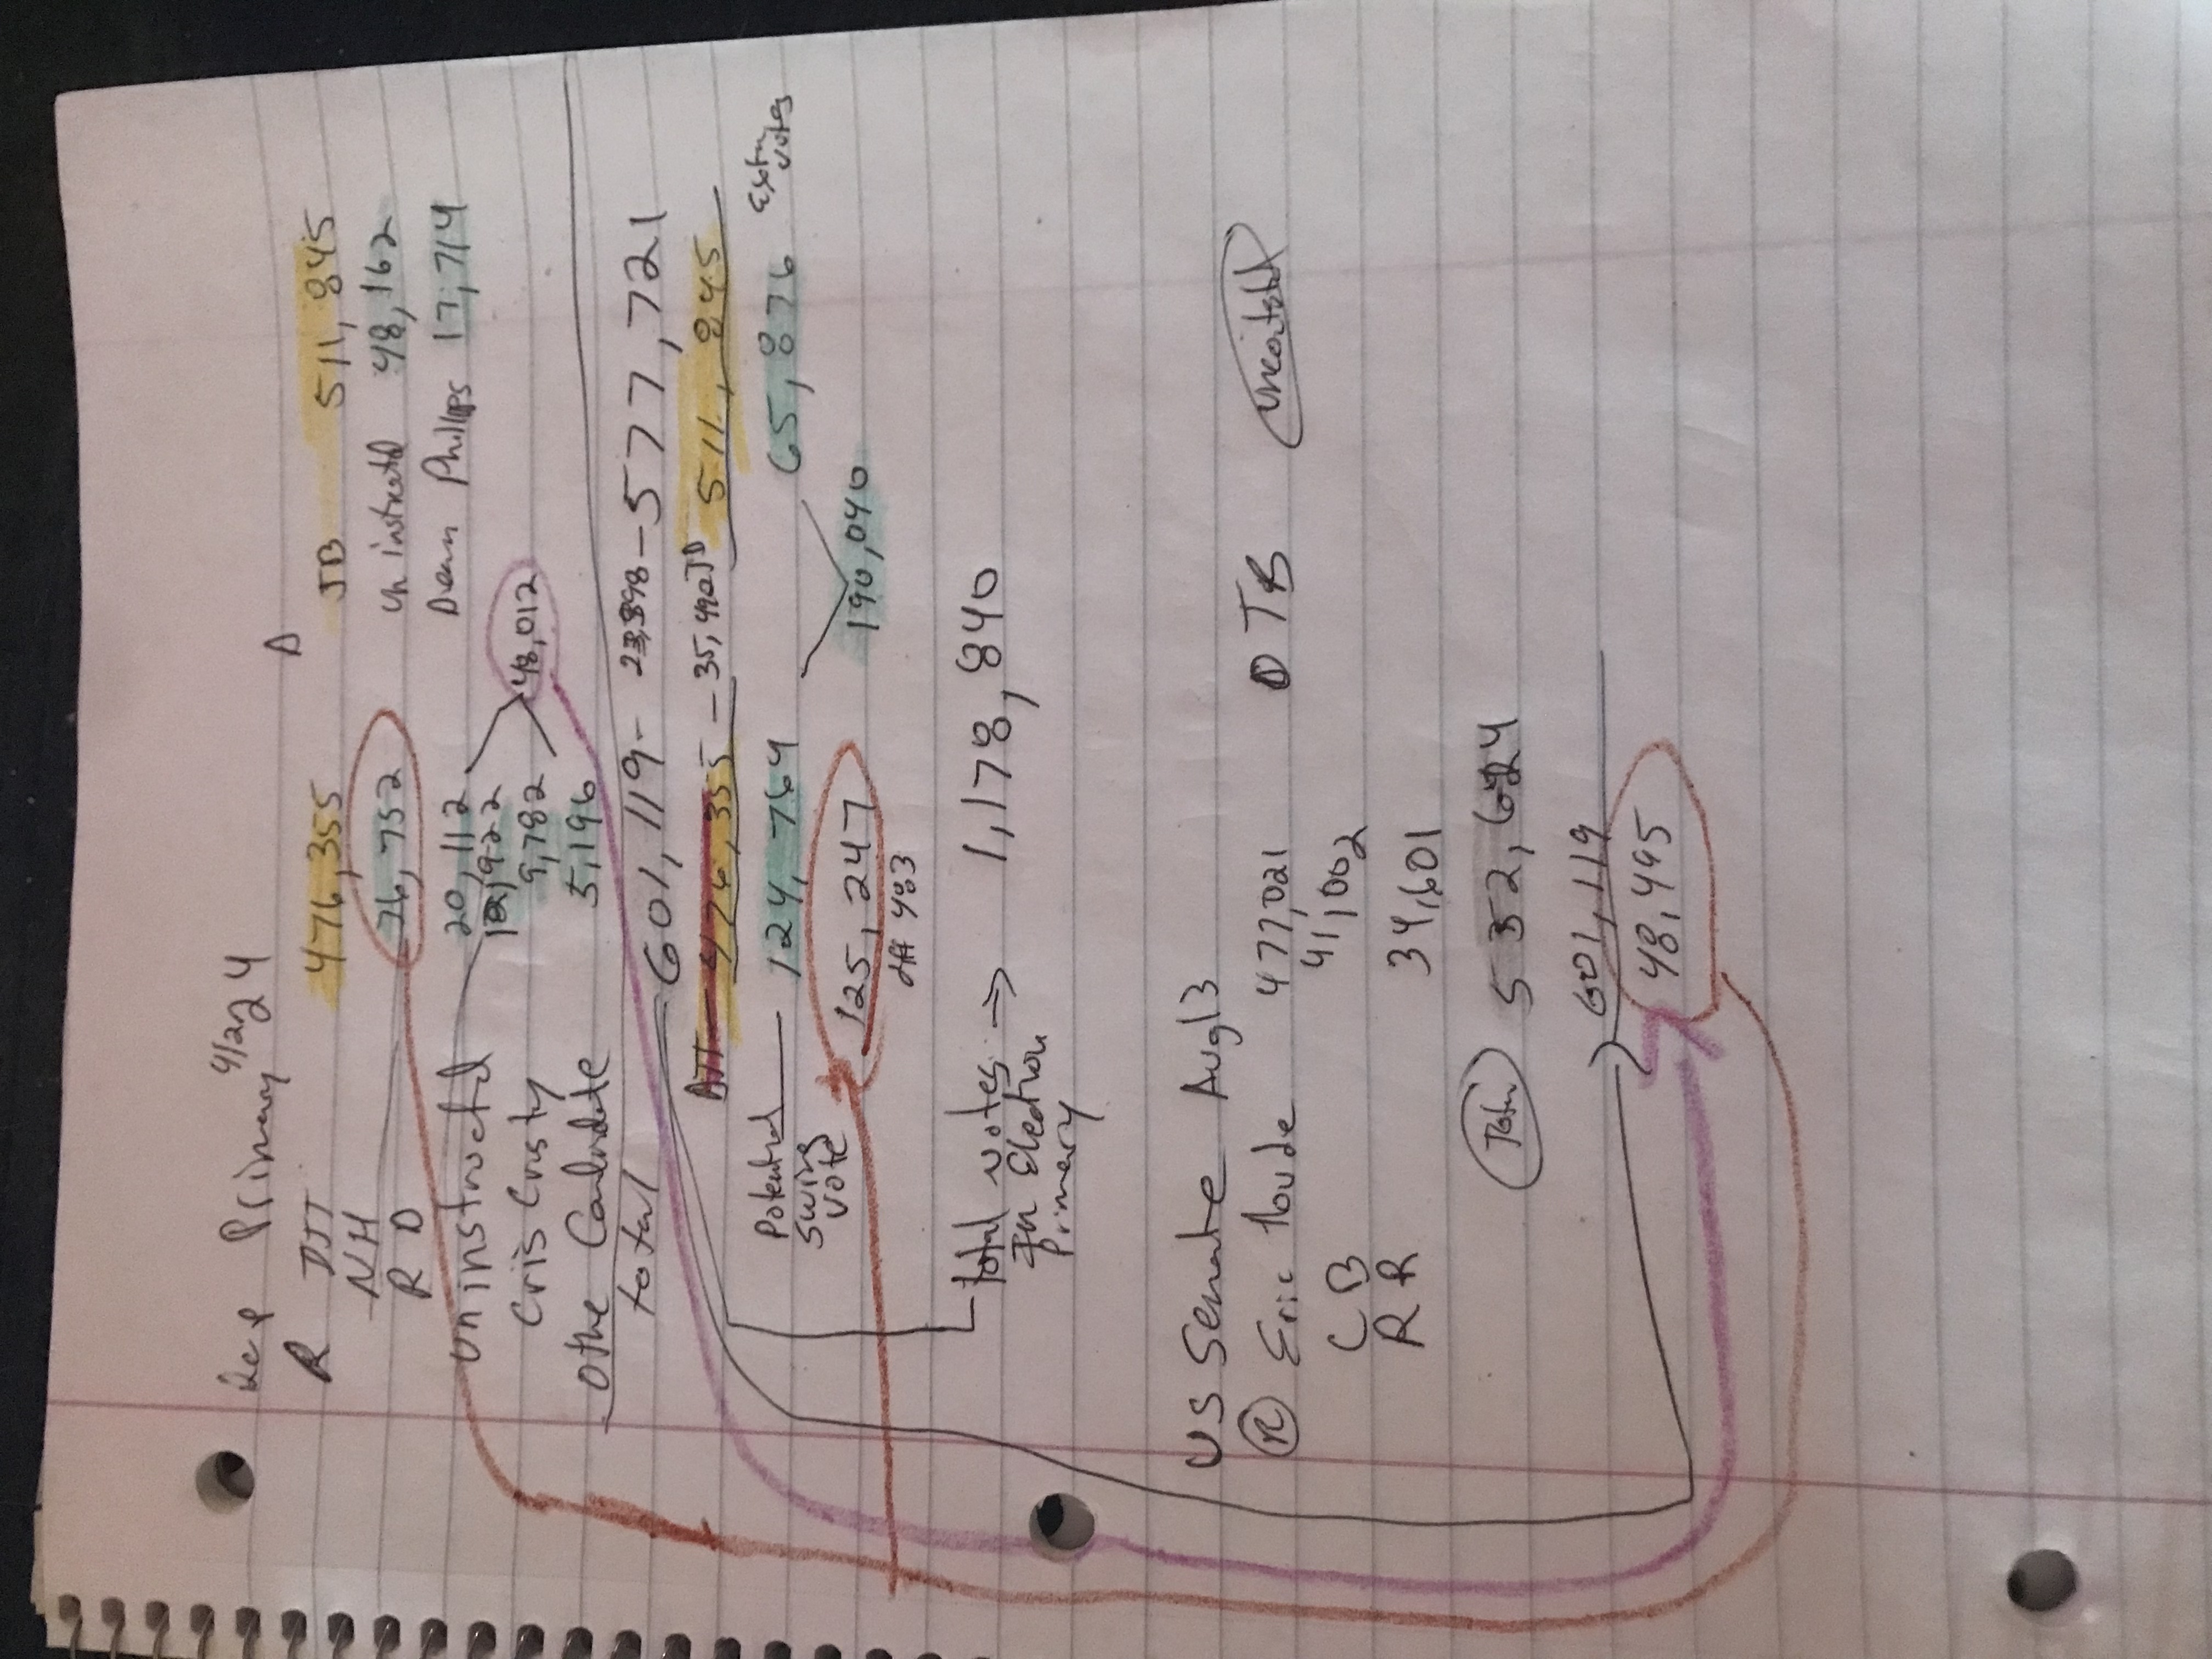 Rep Primary 4/2/24
R D
DJT 476,355 JB 511,845
NH 76,752 Uninstructd 48,162
R D Dean Phillips 17,714
Uninstructd 20,112
12,922
Cris Cristy 9,782 48,012
Othe Candidate 5,196
total 601,119 - 23,398 - 577,721
DJT - 476,355 - 35,490 JB 511,845
Potential Swing Vote 124,764 65,876 Extra votes
190,040
125,247
diff 483
total votes → 1,178,840
For Election
Primary
US Senate Aug 13
(R) Eric Hovde 477,021 D TB uncontested
CB 41,002
RR 34,601
Total 552,624
601,119
48,495